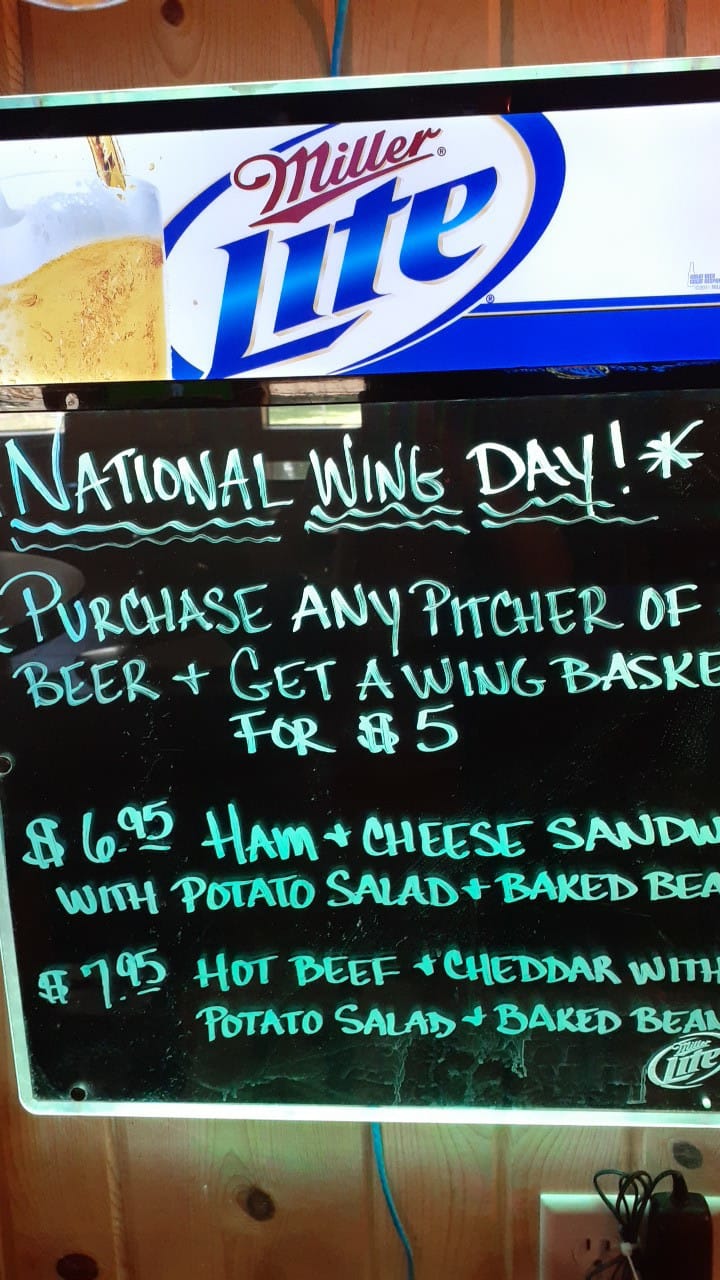 Miller
Lite
NATIONAL WING DAY!*
PURCHASE ANY PITCHER OF
BEER + GET A WING BASKE
FOR $5
$6.95 HAM + CHEESE SANDW
WITH POTATO SALAD + BAKED BEA
$7.95 HOT BEEF + CHEDDAR WITH
POTATO SALAD + BAKED BEAN
Miller
Lite